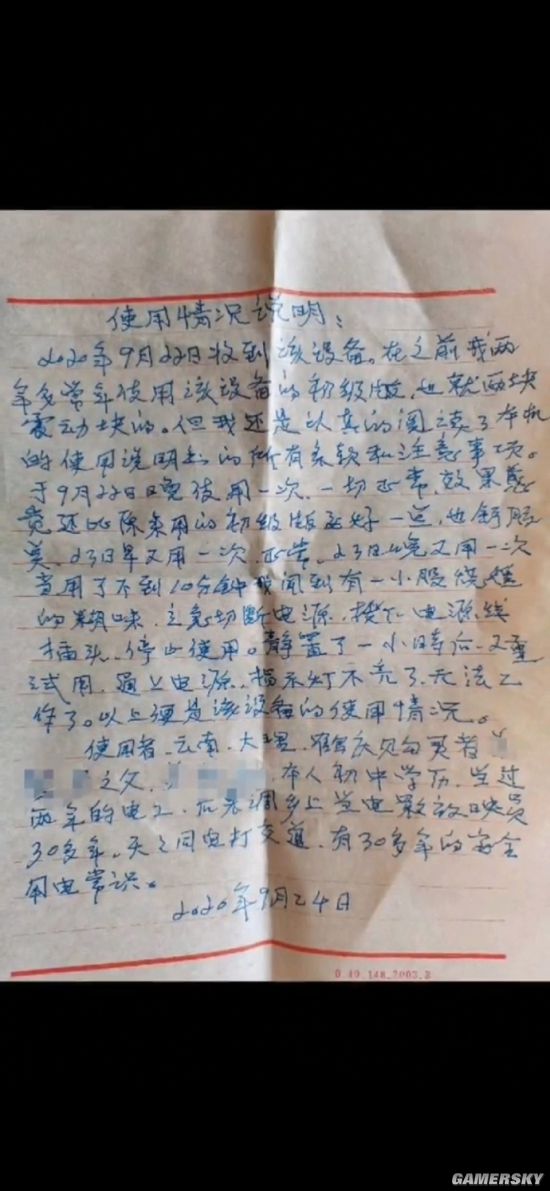 使用情况说明：
2020年9月22日收到该设备。在之前我两
年多常年使用该设备的初级版，也就两块
震动块的。但我还是认真的阅读了本机
的使用说明书的所有条款和注意事项。
于9月22日晚使用一次，一切正常，效果
竟还比原来用的初级版还好一些，也舒服
些。23日早又用一次，正常。23日晚又用一次
当用了不到10分钟我闻到有一小股烧
的糊味，立急切断电源，拔下电源线
插头，停止使用。静置了一小时后，又重
试用，通上电源，指示灯不亮了，无法工
作了。以上便是该设备的使用情况。
使用者，云南，大理，
之父，本人初中学历，当过
两年的电工，后来调乡上当电影放映员
30多年，天天同电打交道，有30多年的安全
用电常识。
2020年9月24日
0.49.148.2003.8
GAMERSKY